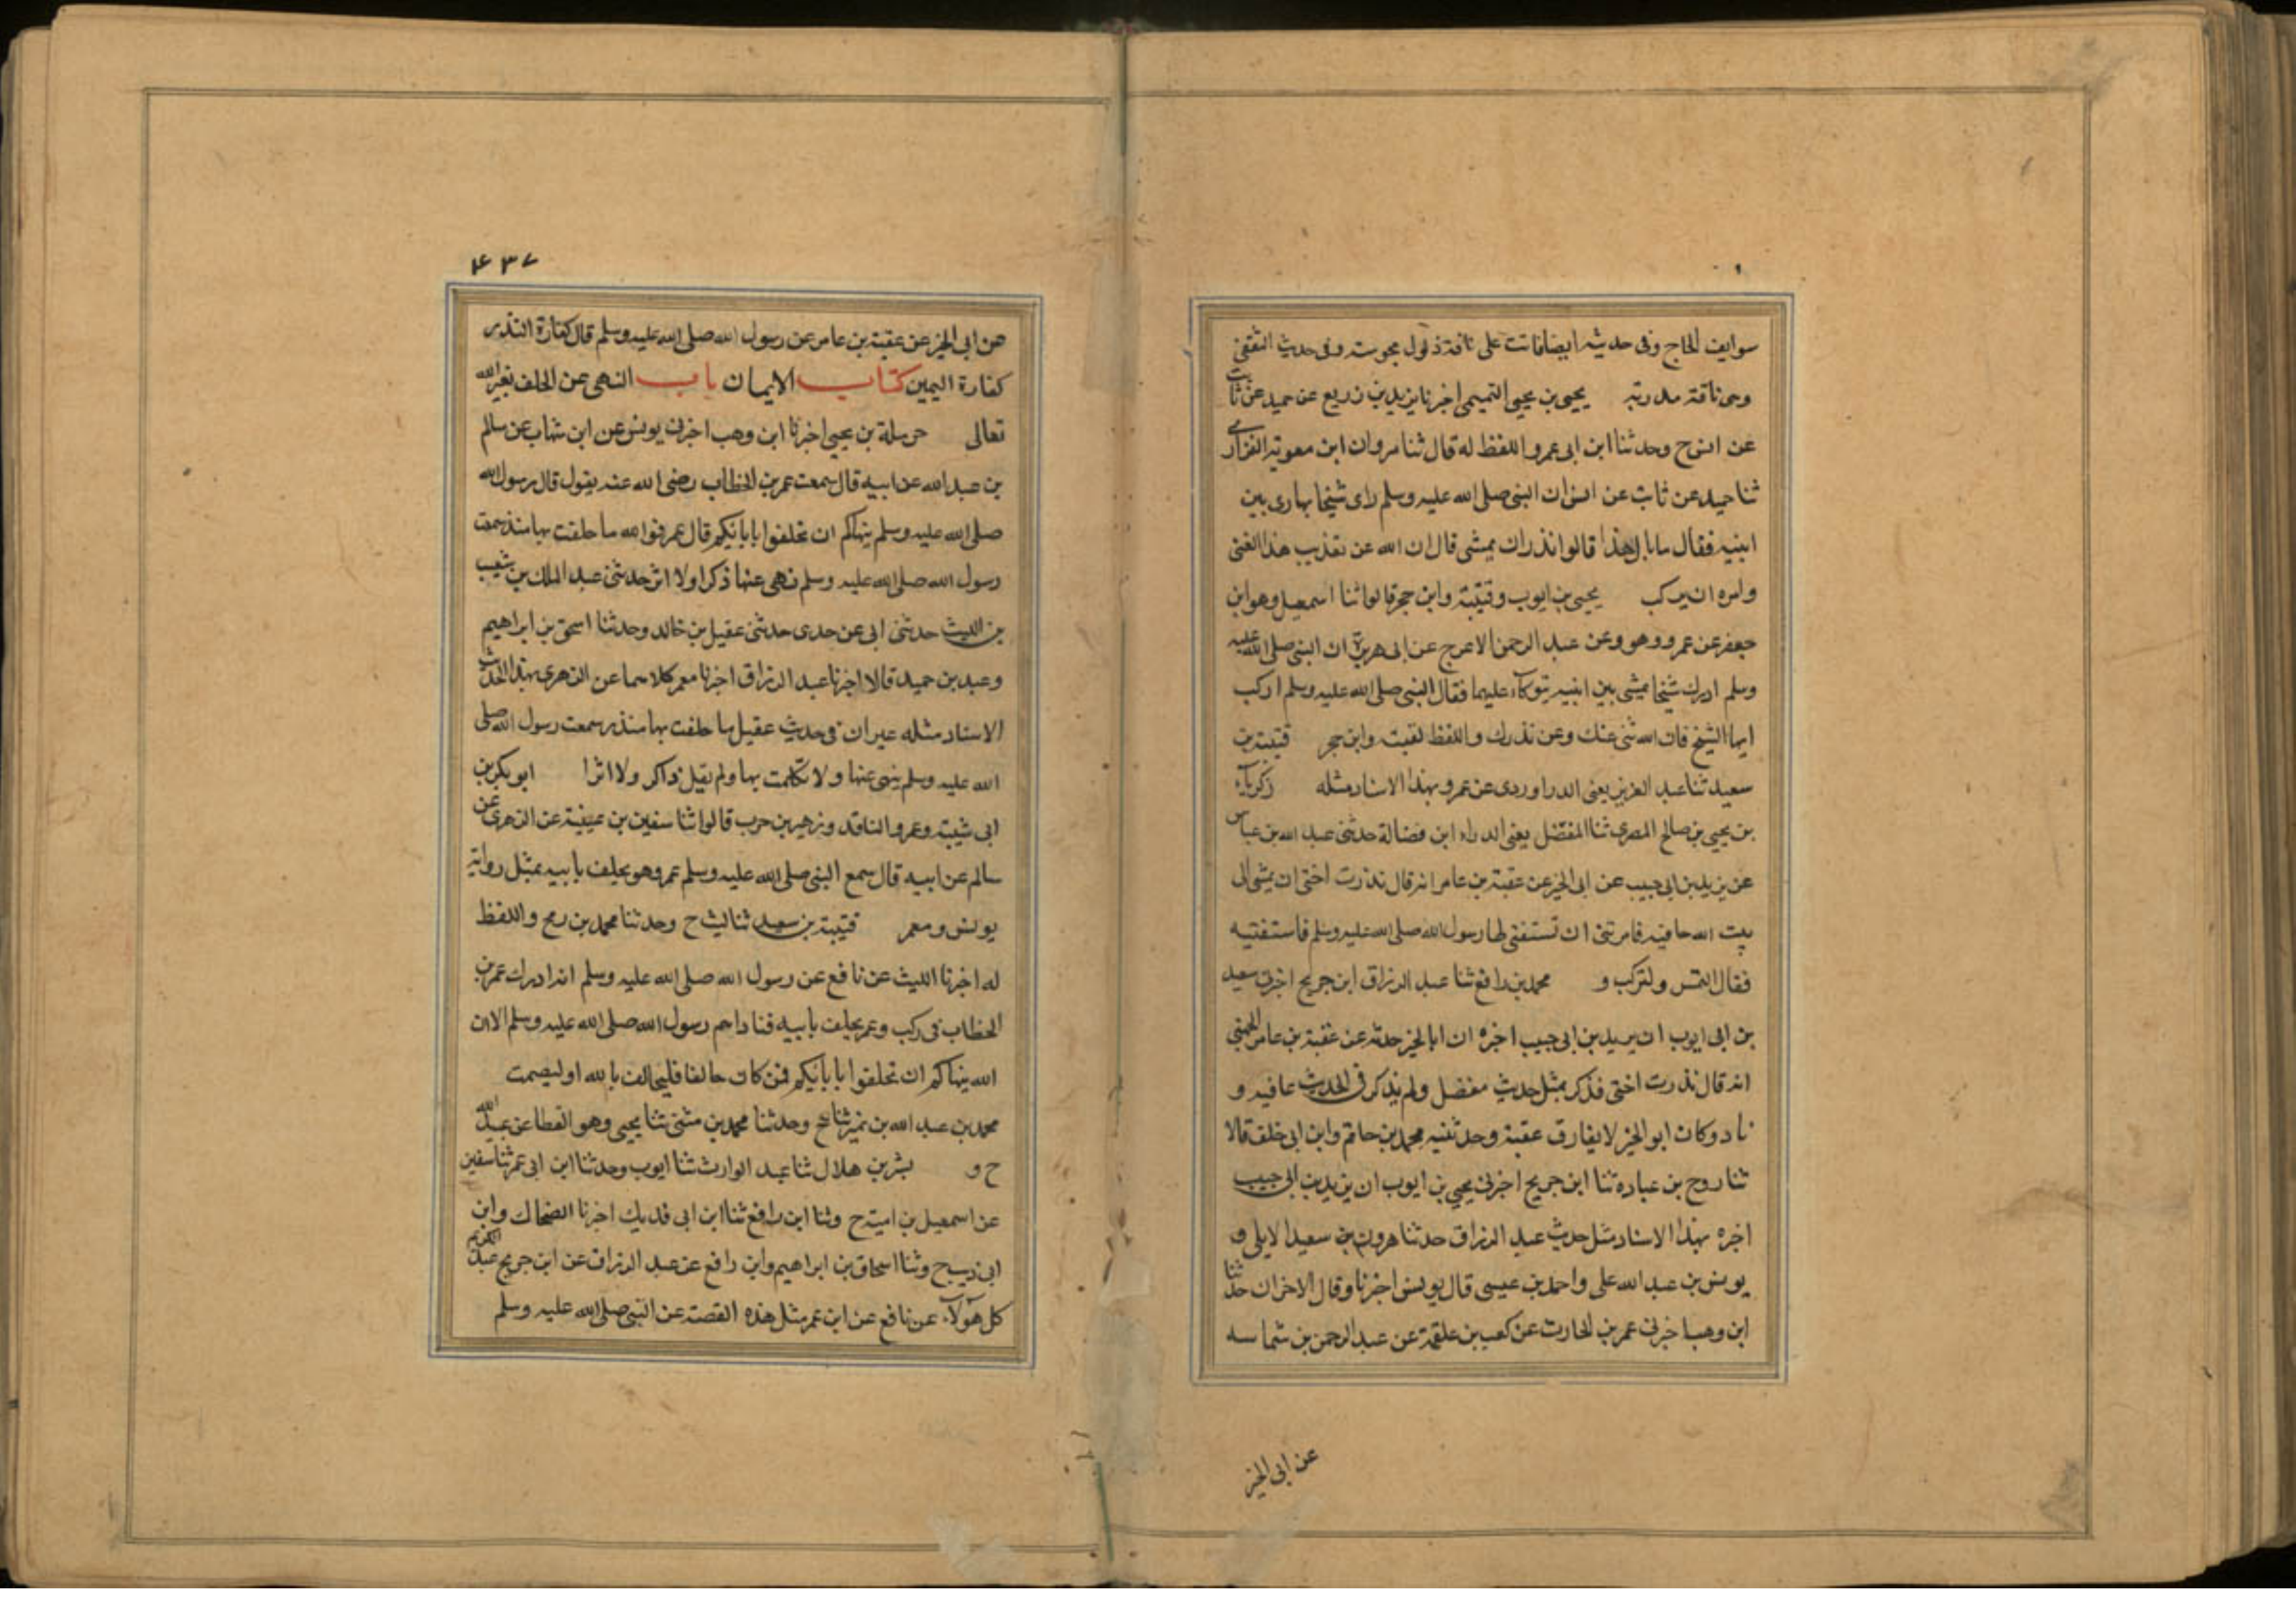 سوابق الحاج وفى حديثه ايضا فاتت على ناقة ذلول مجرسة وفى حديث الثقفى
وهى ناقة مدربة يحيى بن يحيى التميمى اخبرنا يزيد بن زريع عن حميد عن ثابت
عن انس ح وحدثنا ابن ابى عمر واللفظ له قال ثنا مروان ابن معوية الفزارى
ثنا حميد عن ثابت عن انس ان النبى صلى الله عليه وسلم راى شيخا يهادى بين
ابنيه فقال ما بال هذا قالوا نذر ان يمشى قال ان الله عن تعذيب هذا لغنى
وامره ان يركب يحيى بن ايوب وقتيبة وابن حجر قالوا ثنا اسمعيل وهو ابن
جعفر عن عمرو وهو وعن عبد الرحمن الاعرج عن ابى هريرة ان النبى صلى الله عليه
وسلم ادرك شيخا يمشى بين ابنيه يتوكاء عليهما فقال النبى صلى الله عليه وسلم اركب
ايها الشيخ فان الله غنى عنك وعن نذرك واللفظ لقتيبة وابن حجر قتيبة بن
سعيد ثنا عبد العزيز يعنى الدراوردى عن عمرو بهذا الاسناد مثله زكرياء
بن يحيى بن صالح المصرى ثنا المفضل يعنى ابن فضالة حدثنى عبد الله بن عباس
عن يزيد بن ابى حبيب عن ابى الخير عن عقبة بن عامر انه قال نذرت اختى ان تمشى الى
بيت الله حافية فامرتنى ان تستفتى لها رسول الله صلى الله عليه وسلم فاستفتيه
فقال لتمش ولتركب و محمد بن رافع ثنا عبد الرزاق ابن جريح اخبرنى سعيد
بن ابى ايوب ان يزيد بن ابى حبيب اخبره ان ابا الخير حدثه عن عقبة بن عامر الجهنى
انه قال نذرت اختى فذكر بمثل حديث مفضل ولم يذكر فى الحديث حافية و
زاد وكان ابو الخير لا يفارق عقبة وحدثنيه محمد بن حاتم وابن ابى خلف قالا
ثنا روح بن عباده ثنا ابن جريح اخبرنى يحيى بن ايوب ان يزيد بن ابى حبيب
اخبره بهذا الاسناد مثل حديث عبد الرزاق حدثنا هرون بن سعيد الايلى و
يونس بن عبد الله على واحمد بن عيسى قال يونس اخبرنا وقال الاخران حدثنا
ابن وهب اخبرنى عمر بن الحارث عن كعب بن علقمة عن عبد الرحمن بن شماسه
عن ابى الخير
٤٣٧
عن ابى الخير عن عقبة بن عامر عن رسول الله صلى الله عليه وسلم قال كفارة النذر
كفارة اليمين كتاب الايمان باب النهى عن الحلف بغير الله
تعالى حرملة بن يحيى اخبرنا ابن وهب اخبرنى يونس عن ابن شهاب عن سالم
بن عبد الله عن ابيه قال سمعت عمر بن الخطاب رضى الله عنه يقول قال رسول الله
صلى الله عليه وسلم ينهاكم ان تحلفوا بابائكم قال عمر فوالله ما حلفت بها منذ سمعت
رسول الله صلى الله عليه وسلم نهى عنها ذكرا ولا اثر حدثنى عبد الملك بن شعيب
بن الليث حدثنى ابى عن جدى حدثنى عقيل بن خالد وحدثنا اسحق بن ابراهيم
وعبد بن حميد قالا اخبرنا عبد الرزاق اخبرنا معمر كلاهما عن الزهرى بهذا الحديث
الاسناد مثله غير ان فى حديث عقيل ما حلفت بها منذ سمعت رسول الله صلى
الله عليه وسلم ينهى عنها ولا تكلمت بها ولم يقل ذاكر ولا اثرا ابو بكر بن
ابى شيبة وعمرو الناقد وزهير بن حرب قالوا ثنا سفين بن عيينة عن الزهرى عن
سالم عن ابيه قال سمع النبى صلى الله عليه وسلم عمر وهو يحلف بابيه بمثل رواية
يونس ومعمر قتيبة بن سعيد ثنا ليث ح وحدثنا محمد بن رمح واللفظ
له اخبرنا الليث عن نافع عن رسول الله صلى الله عليه وسلم انه ادرك عمر بن
الخطاب فى ركب وعمر يحلف بابيه فناداهم رسول الله صلى الله عليه وسلم الا ان
الله ينهاكم ان تحلفوا بابائكم فمن كان حالفا فليحالف بالله او ليصمت
محمد بن عبد الله بن نمير ثنا ح وحدثنا محمد بن مثنى ثنا يحيى وهو القطا عن عبيد الله
ح و بشر بن هلال ثنا عبد الوارث ثنا ايوب وحدثنا ابن ابى عمر ثنا سفين
عن اسمعيل بن امية ح وثنا ابن رافع ثنا ابن ابى فديك اخبرنا الضحاك وابن
ابى ذيب ح وثنا اسحاق بن ابراهيم وابن رافع عن عبد الرزاق عن ابن جريح عبد الكريم
كل هؤلاء عن نافع عن ابن عمر مثل هذه القصة عن النبى صلى الله عليه وسلم